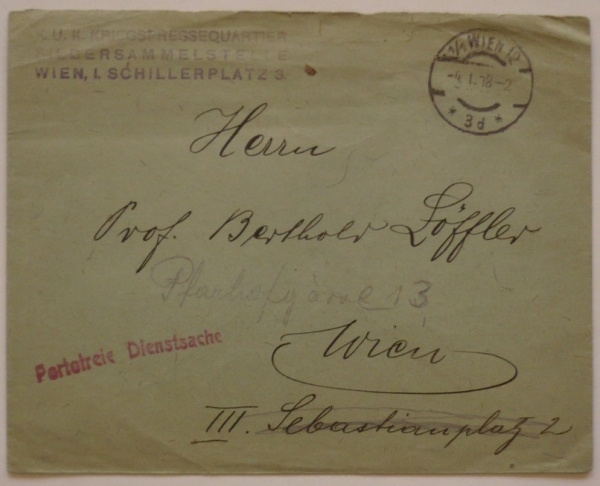 K. U. K. KRIEGSPRESSEQUARTIER
BILDERSAMMELSTELLE
WIEN, I. SCHILLERPLATZ 3.
1/1 WIEN 12
-4.I.18-2
* 3d *
Herrn
Prof. Berthold Löffler
Pfarrhofgasse 13
Portofreie Dienstsache
Wien
III. Sebastianplatz 2